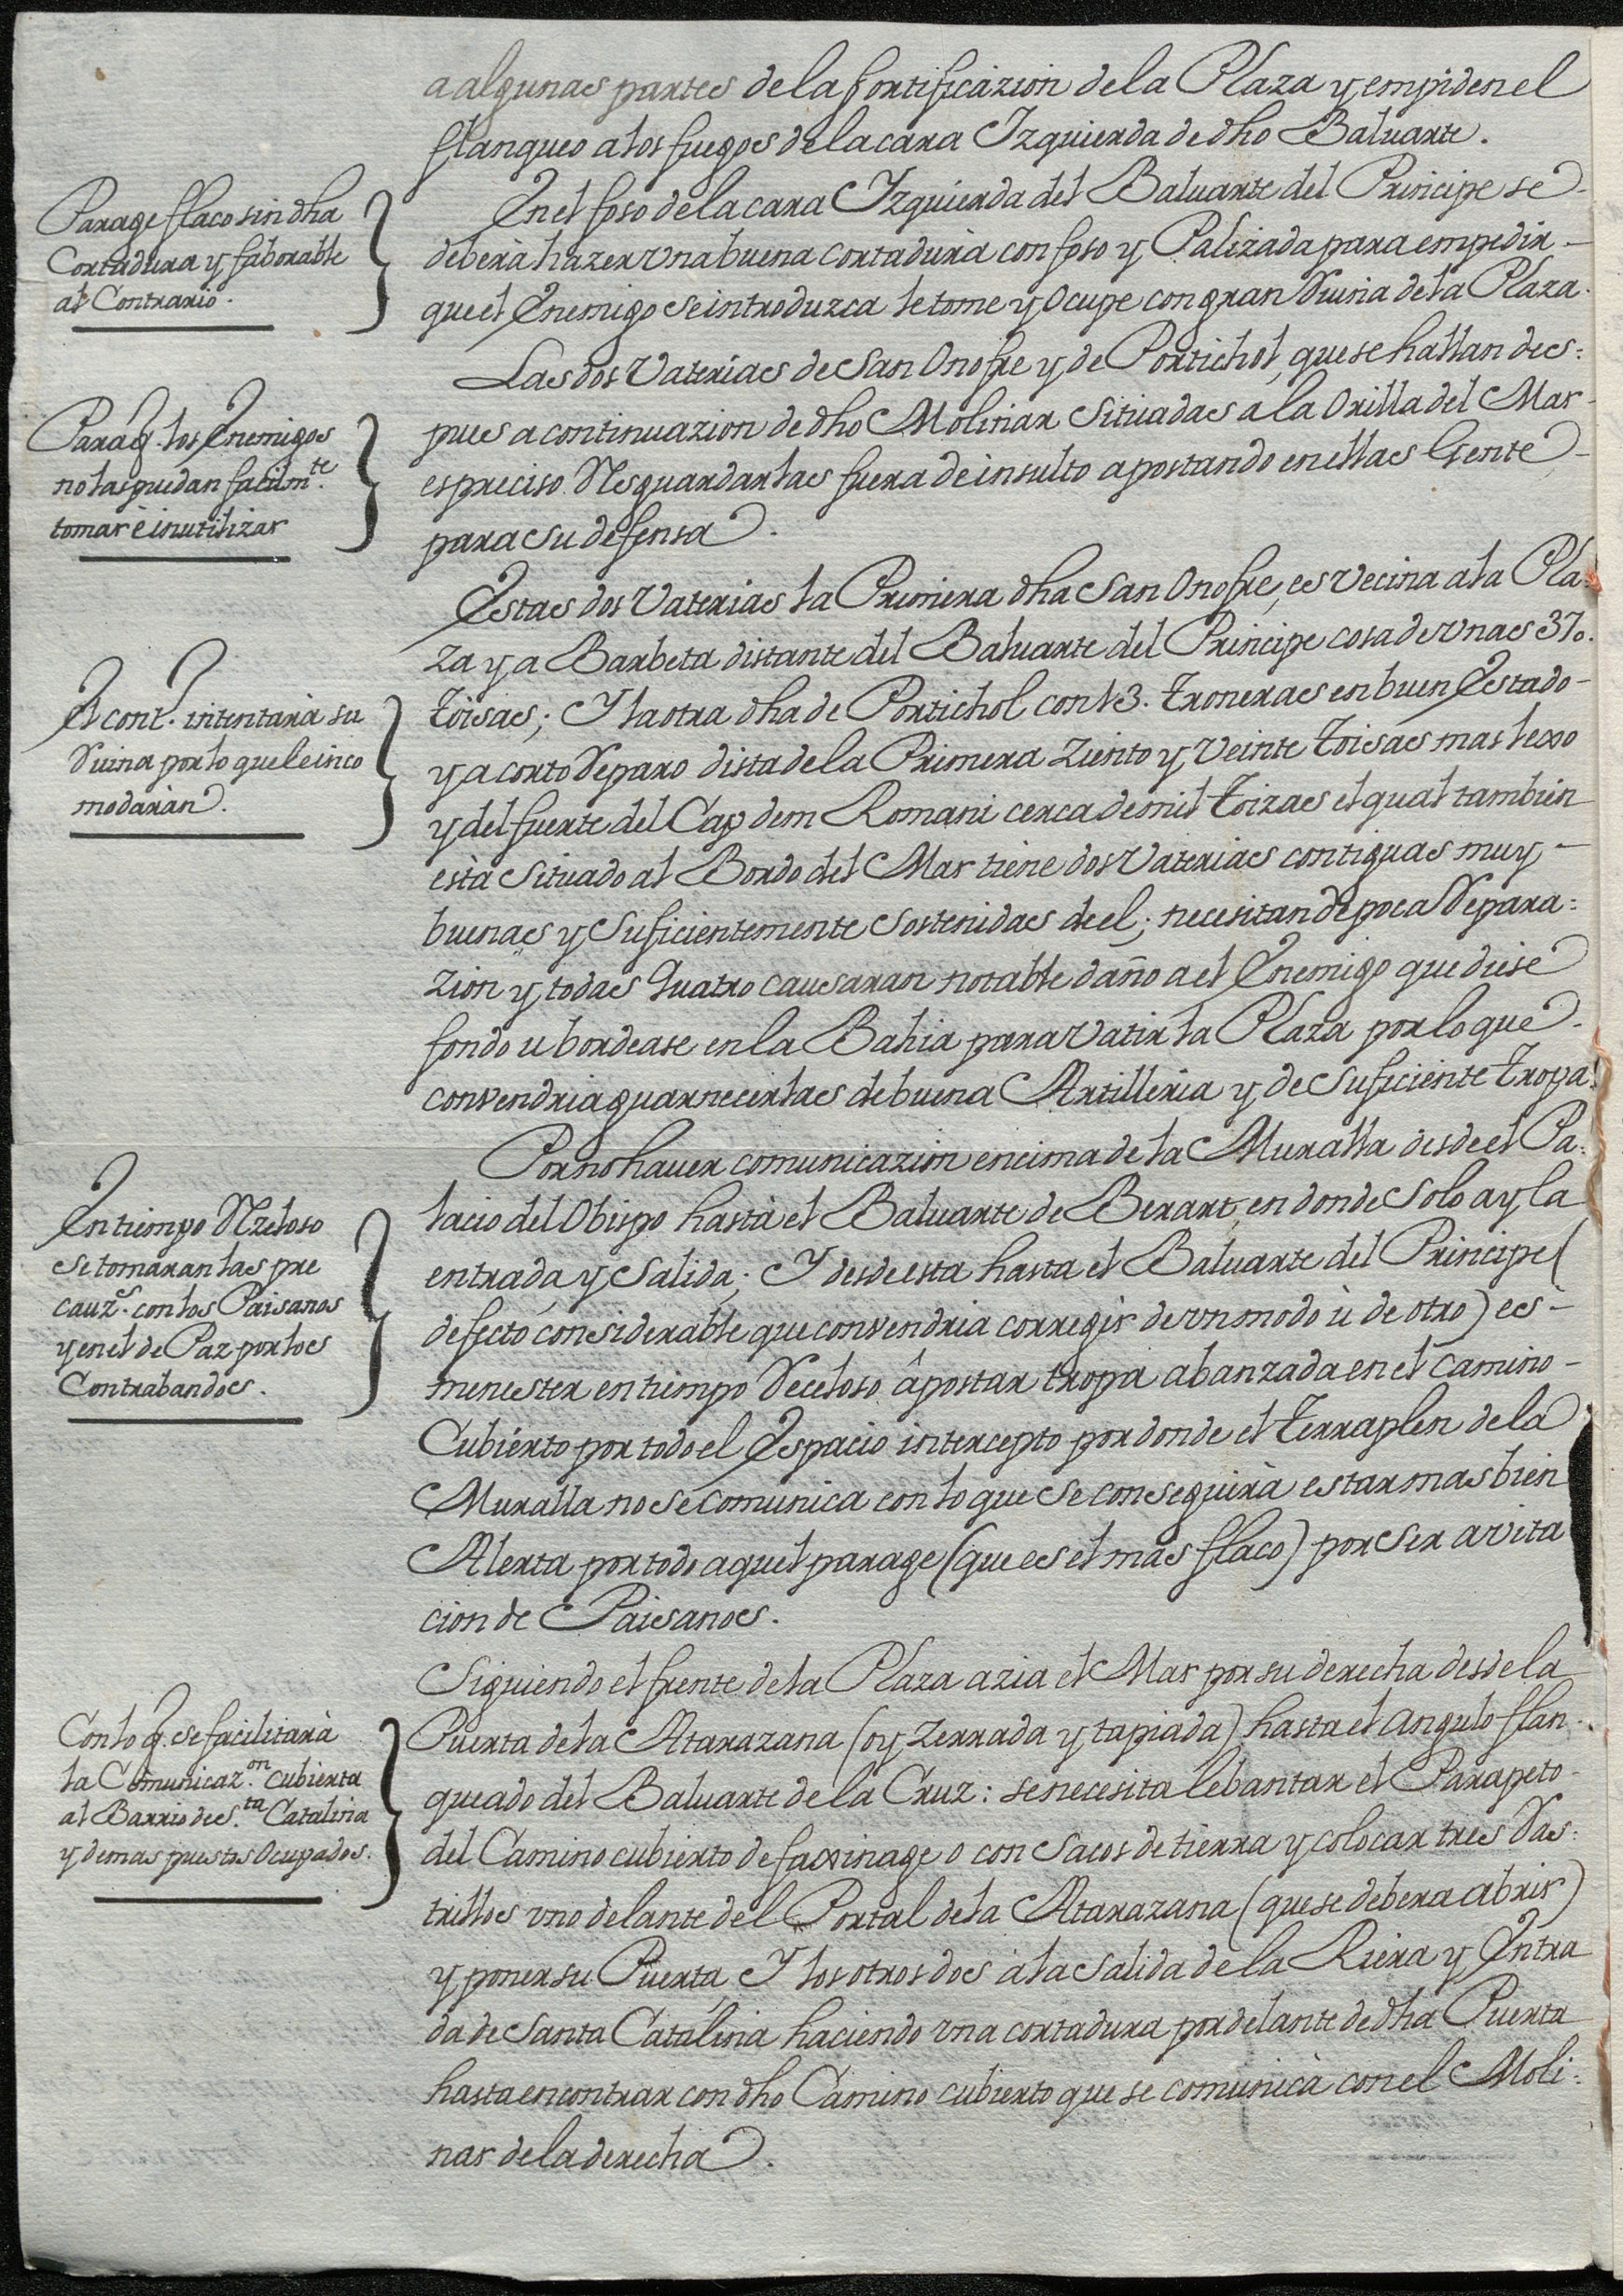 a algunas partes de la fortificazion de la Plaza y empiden el
flanqueo a los fuegos de la cara Izquierda de dho Baluarte.
Parage flaco sin dha
Cortadura y faborable
al Contrario.
En el foso de la cara Izquierda del Baluarte del Principe se
deberà hazer vna buena cortadura con foso y Palizada para empedir
que el Enemigo se introduzca le tome y Ocupe con gran Ruina de la Plaza.
Las dos Vaterias de San Onofre y de Portichol, que se hallan des=
Para q. los Enemigos
no las puedan facilm.te
tomar è inutilizar
pues a continuazion de dho Molinar Situadas a la Orilla del Mar
es preciso Resguardarlas fuera de insulto apostando en ellas Gente
para su defensa.
Estas dos Vaterias la Primera dha San Onofre, es vecina a la Pla=
za y a Barbeta distante del Baluarte del Principe cosa de vnas 370.
El cont.o intentarà su
Ruina por lo que le inco
modaràn.
toisas; Y la otra dha de Portichol con 13. troneras en buen Estado
y a corto Reparo dista de la Primera Ziento y Veinte toisas mas lexo
y del fuerte del Cap dem Romani cerca de mil toizas el qual tambien
està situado al Bordo del Mar tiene dos Vaterias contiguas muy
buenas y Suficientemente Sostenidas de el; necesitan de poca Repara=
zion y todas quatro causaran notable daño a el Enemigo que diese
fondo u bordease en la Bahia para Vatir la Plaza por lo que
convendria guarnecerlas de buena Artilleria y de Suficiente tropa.
Por no hauer comunicazion encima de la Muralla desde el Pa=
En tiempo Rezeloso
se tomaran las pre
cauz.s con los Paisanos
y en el de Paz por los
Contrabandos.
lacio del Obispo hasta el Baluarte de Berart, en donde solo ay la
entrada y Salida; Y desde esta hasta el Baluarte del Principe (
defecto considerable que convendria corregir de vn modo ù de otro) es
menester en tiempo Receloso âpostar tropa abanzada en el Camino
Cubierto por todo el Espacio intercepto por donde el terraplen de la
Muralla no se comunica con lo que se conseguirà estar mas bien
Alerta por todo aquel parage (que es el mas flaco) por ser avita
cion de Paisanos.
Siguiendo el frente de la Plaza azia el Mar por su derecha desde la
Con lo q. se facilitarà
la Comunicaz.on cubierta
al Barrio de S.ta Catalina
y demas puestos Ocupados.
Puerta de la Atarazana (oy zerrada y tapiada) hasta el angulo flan
queado del Baluarte de la Cruz: se necesita lebantar el Parapeto
del Camino cubierto de faxinage o con Sacos de tierra y colocar tres Ras=
trillos vno delante del Portal de la Atarazana (que se debera abrir)
y poner su Puerta, Y los otros dos à la salida de la Riera y Entra
da de Santa Catalina haciendo vna cortadura por delante de dha Puerta
hasta encontrar con dho Camino cubierto que se comunicà con el Moli=
nar de la derecha.